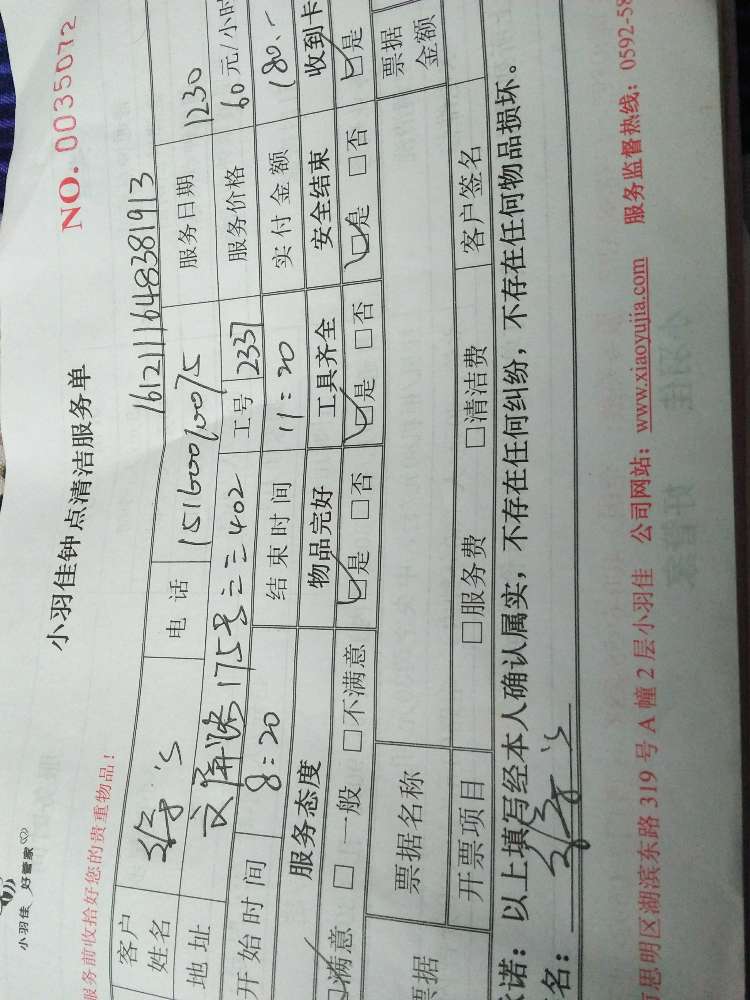 小羽佳 好管家
小羽佳钟点清洁服务单
NO. 0035072
服务前收拾好您的贵重物品！
1612111648381913
客户姓名 电话 服务日期 1230
地址 文屏路175号 402 工号 2337 服务价格 60元/小时
开始时间 8:20 结束时间 11:20 实付金额 180.-
服务态度 物品完好 工具齐全 安全结束 收到卡
满意 □一般 □不满意 □是 □否 □是 □否 □是 □否 □是
票据 票据名称 票据金额
开票项目 □服务费 □清洁费 客户签名
诺：以上填写经本人确认属实，不存在任何纠纷，不存在任何物品损坏。
名：
思明区湖滨东路319号A幢2层小羽佳 公司网站：www.xiaoyujia.com 服务监督热线：0592-58